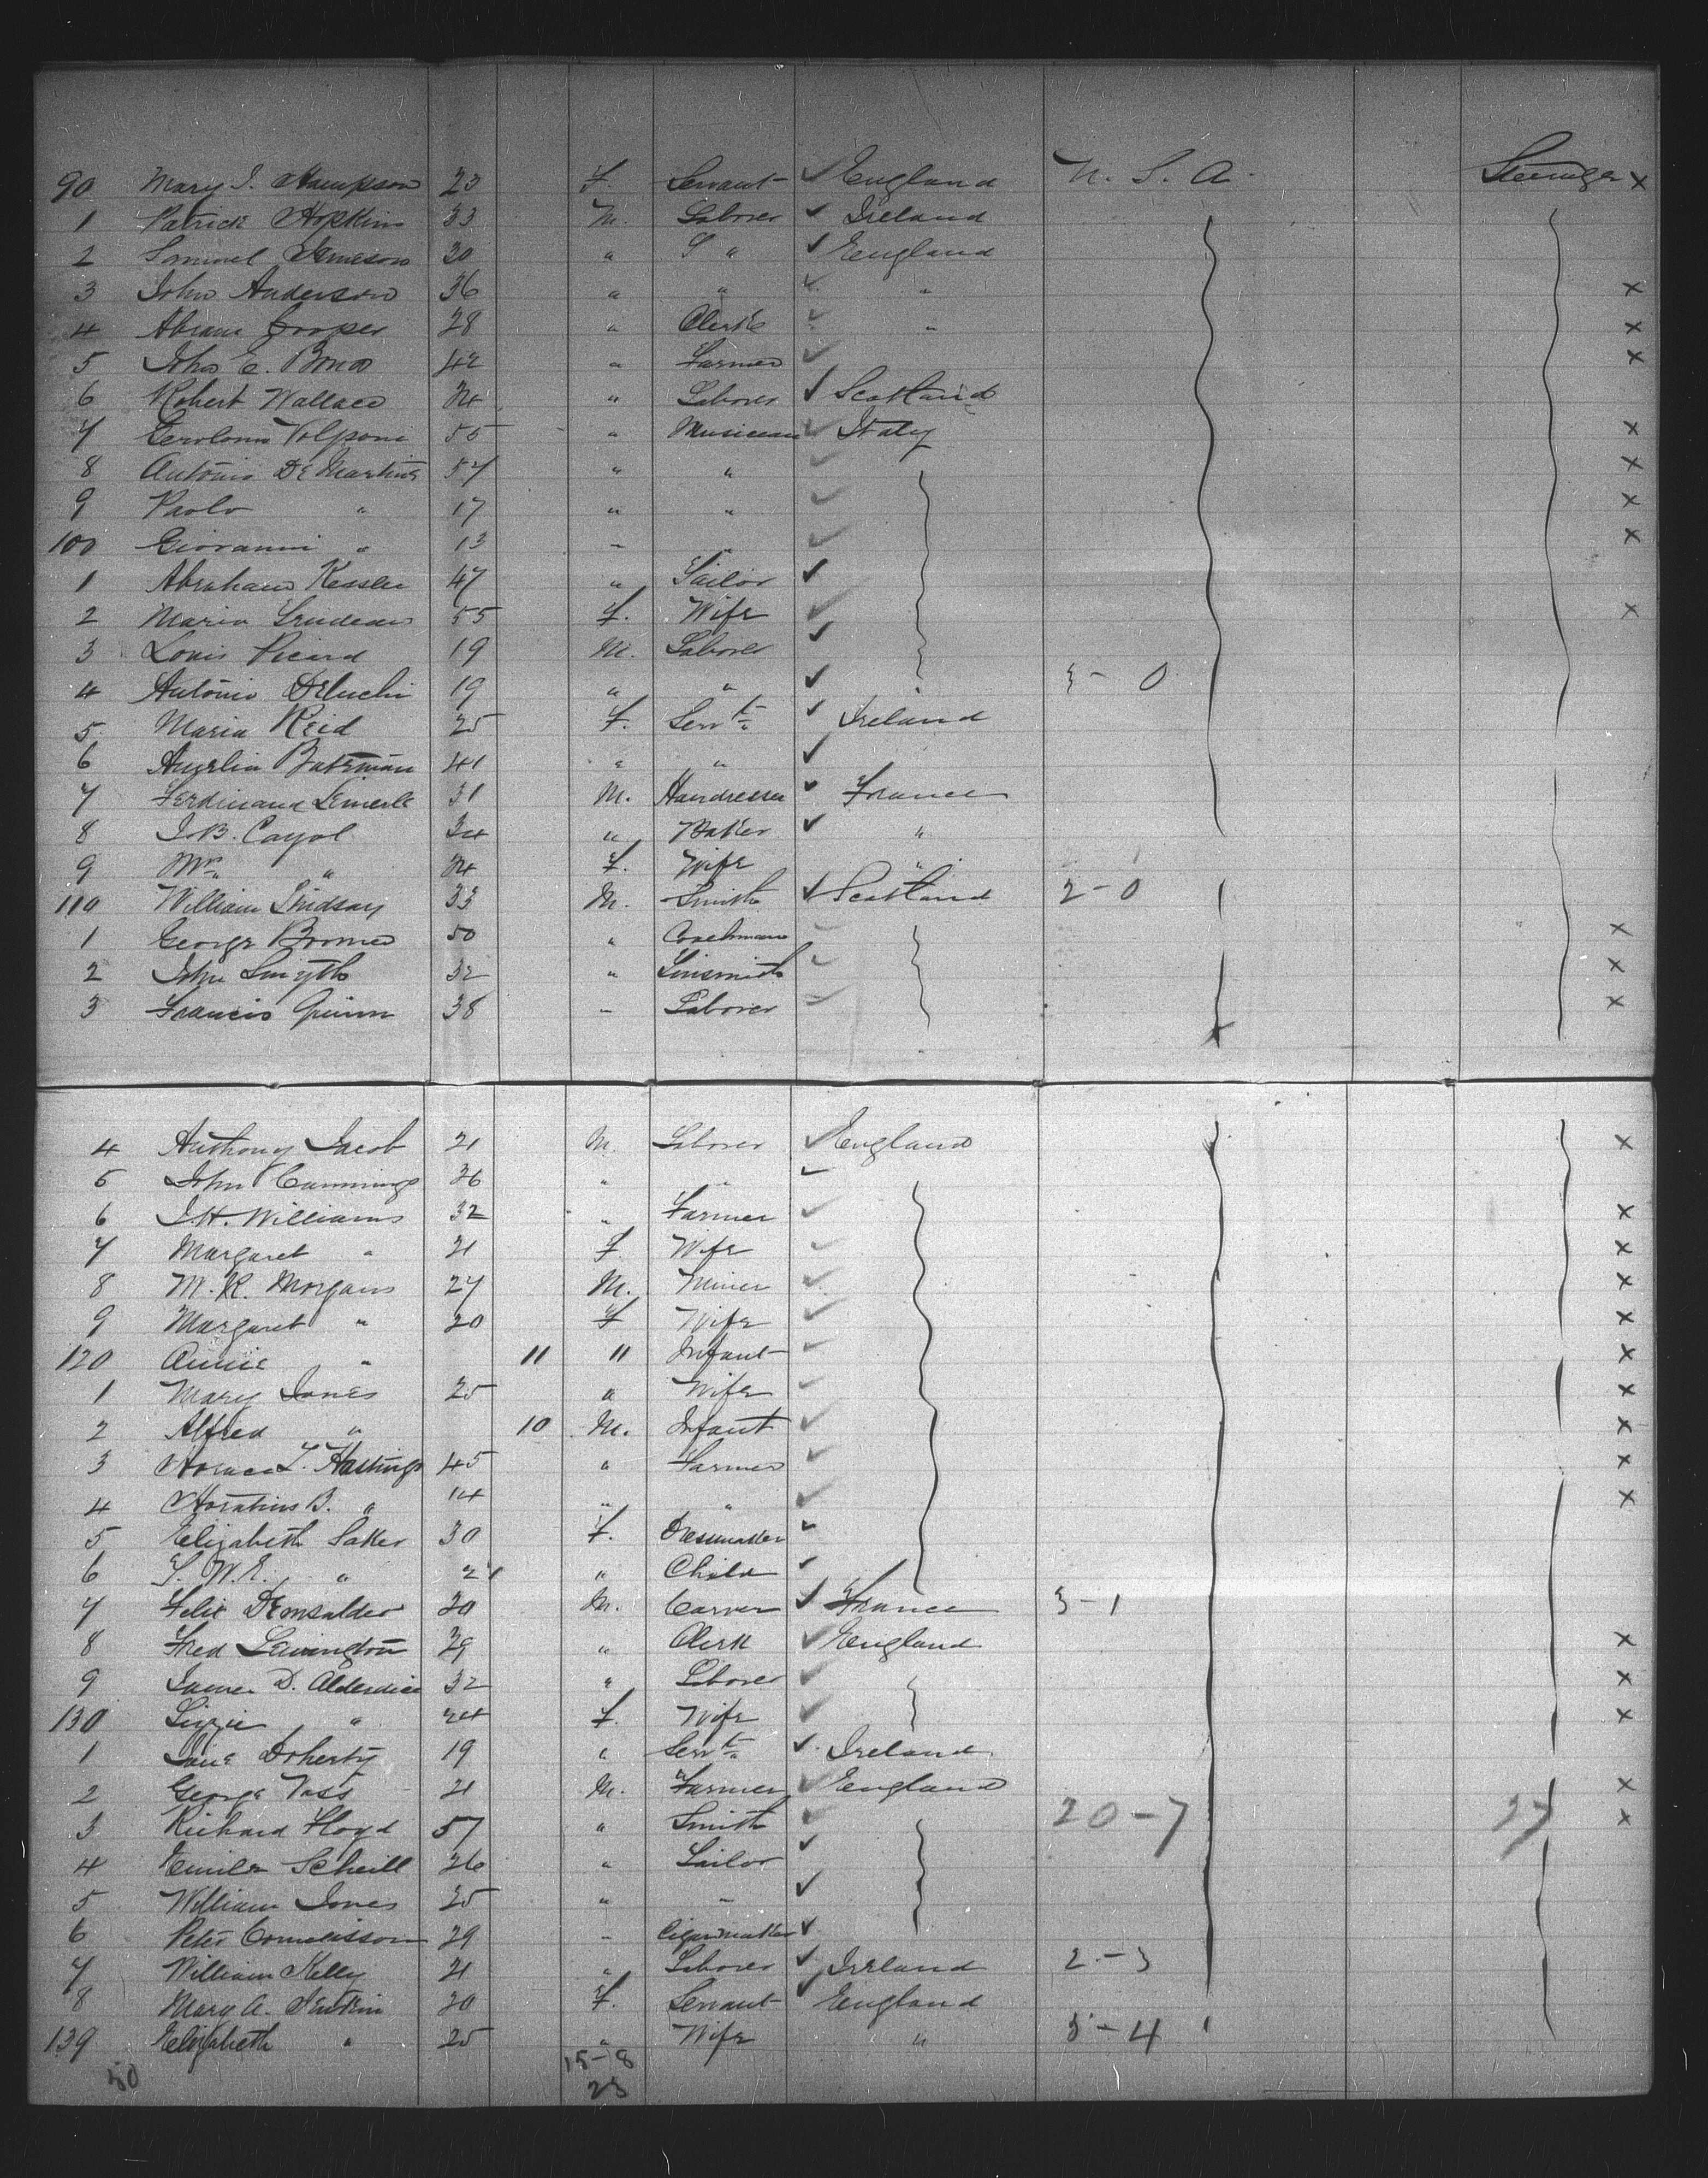 90 Mary J. Hampson 23 F. Servant ✓ England U. S. A. Steerage x
1 Patrick Hopkins 33 M. Laborer ✓ Ireland
2 Samuel Jameson 30 " " ✓ England
3 John Anderson 36 " " ✓ " x
4 Abram Cooper 28 " Clerk ✓ " x
5 John E. 42 " Farmer ✓ x
6 Robert Wallace 34 " Laborer ✓ Scotland
7 Volponi 55 " Musician ✓ Italy x
8 Antonio De Martino 57 " " ✓ x
9 Paolo " 17 " " ✓ x
100 Giovanni " 13 " " ✓ x
1 Abraham Kessler 47 " Tailor ✓
2 Maria 55 F. Wife ✓ x
3 Louis Picard 19 M. Laborer ✓
4 Antonio Deluchi 19 " " ✓ 3-0
5 Maria Reid 25 F. Servt. ✓ Ireland
6 Amelia Bateman 41 " " ✓
7 Ferdinand Lemerle 31 M. Hairdresser ✓ France
8 J.B. Cayol 34 " Baker ✓ "
9 Mrs. " 34 F. Wife "
110 William Lindsay 33 M. Smith ✓ Scotland 2-0
1 George 50 " Coachman ✓ x
2 John Smyth 32 " Tinsmith ✓ x
3 Francis Quinn 38 " Laborer ✓ x
4 Anthony Jacob 21 M. Laborer ✓ England x
5 John Cummings 36 " " ✓
6 J.H. Williams 32 " Farmer ✓ x
7 Margaret " 21 F. Wife ✓ x
8 M. R. Morgans 27 M. Miner ✓ x
9 Margaret " 20 F. Wife ✓ x
120 Annie " 11 " Infant ✓ x
1 Mary Jones 25 " Wife ✓ x
2 Alfred " 10 M. Infant ✓ x
3 Horace L. Hastings 45 " Farmer ✓ x
4 Horatius B. " 14 " " ✓ x
5 Elizabeth Saker 30 F. Dressmaker ✓
6 W.E. " " Child ✓
7 Felix 30 M. Carver ✓ France 3-1
8 Fred Lavington 39 " Clerk ✓ England x
9 James D. Alderdice 32 " Laborer ✓ x
130 Lizzie " 24 F. Wife ✓ x
1 Jane Doherty 19 " Servt. ✓ Ireland
2 George Voss 21 M. Farmer ✓ England x
3 Richard Floyd 57 " Smith ✓ 20-7 27 x
4 Emile Scheill 26 " Tailor ✓
5 William Jones 25 " " ✓
6 Peter Cornelisson 29 " Cigarmaker ✓
7 William Kelly 21 " Laborer ✓ Ireland 2-3
8 Mary A. Jenkin 30 F. Servant ✓ England
139 Elizabeth " 25 " Wife " 3-4
50 15-8
23